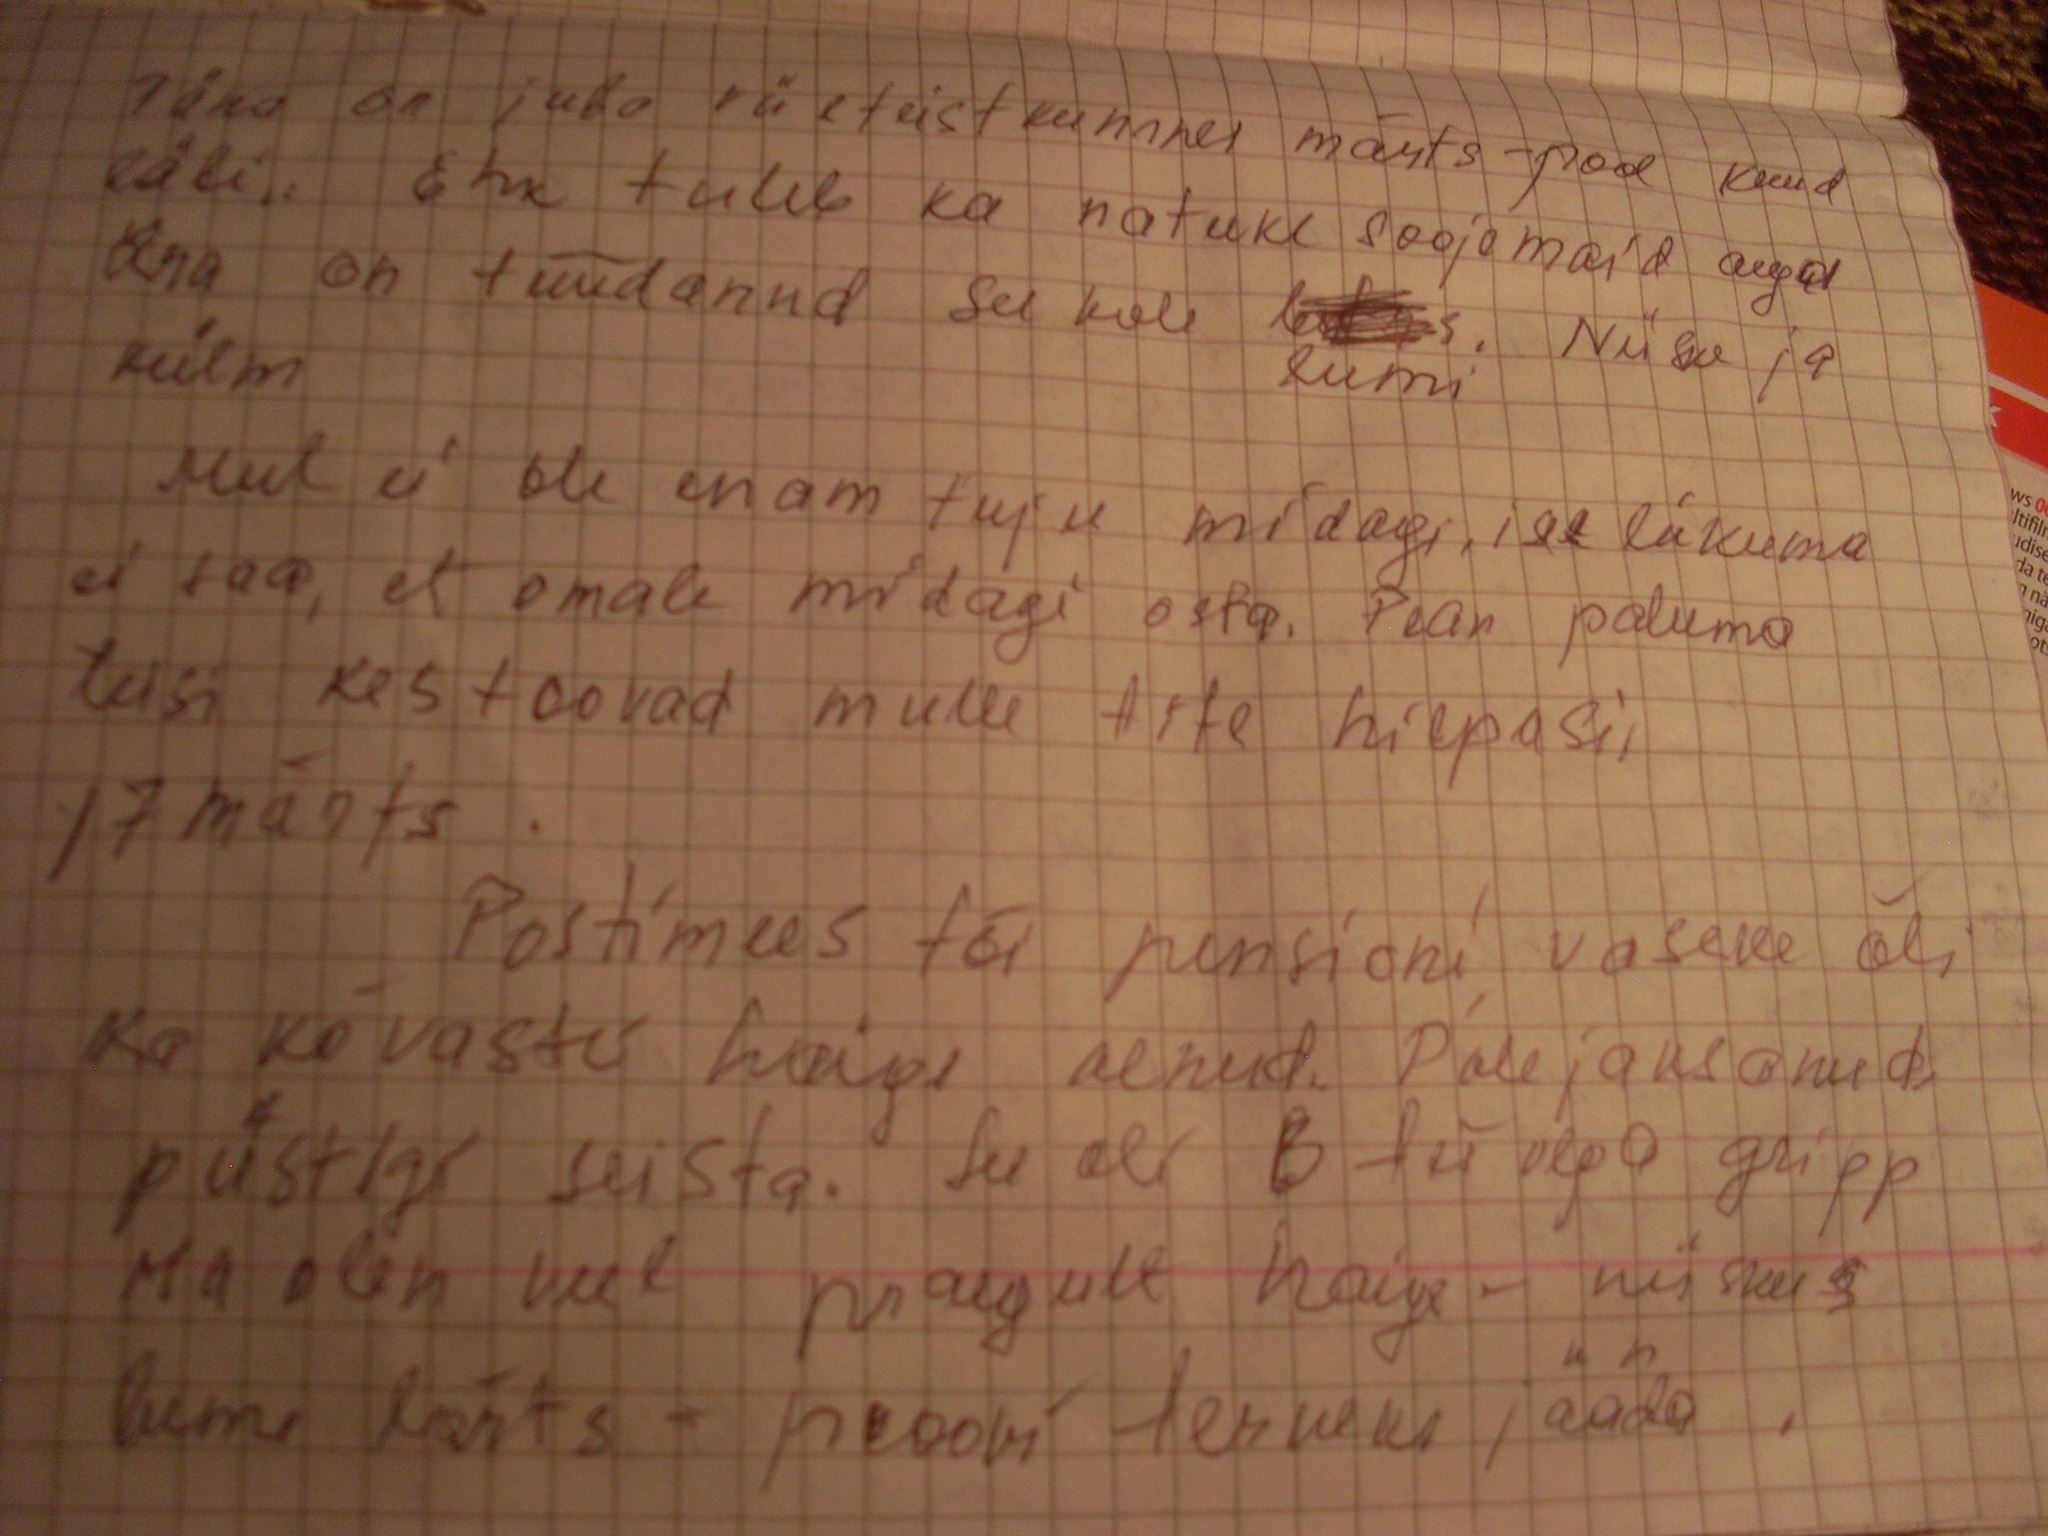 Täna on juba viieteistkümnes märts - pool kuud
läbi.. Ehk tuleb ka natuke soojemaid aegu
Ära on tüüdanud see kole lumi. Niiske ja
külm
Mul ei ole enam tuju midagi, ise läkuma
ei saa, et omale midagi osta. Pean paluma
teisi kes toovad mulle tite hiepasi,
17 märts.
Postimees tõi pensioni vaseke oli
ka kõvasti haige olnud. Pole jaksanud
püstigi seista. See oli B tüüpga gripp
Ma olen veel praegult haige - niiskus
lume lärts - proovi terveks jääda.